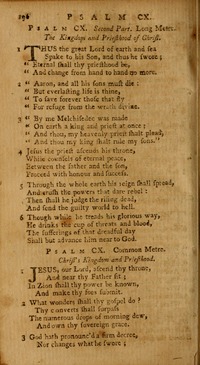 196 PSALM CX.
PSALM CX. Second Part. Long Meter.
The Kingdom and Priesthood of Christ.
1 THUS the great Lord of earth and sea
Spake to his Son, and thus he swore;
"Eternal shall thy priesthood be,
"And change from hand to hand no more.
2 "Aaron, and all his sons must die:
"But everlasting life is thine,
"To save forever those that fly
"For refuge from the wrath divine.
3 "By me Melchisedec was made
"On earth a king and priest at once;
"And thou, my heavenly priest shalt plead,
"And thou my king shalt rule my sons."
4 Jesus the priest ascends his throne,
While counsels of eternal peace,
Between the father and the son,
Proceed with honour and success.
5 Through the whole earth his reign shall spread,
And crush the powers that dare rebel:
Then shall he judge the rising dead,
And send the guilty world to hell.
6 Though while he treads his glorious way,
He drinks the cup of threats and blood,
The sufferings of that dreadful day
Shall but advance him near to God.
PSALM CX. Common Meter.
Christ's Kingdom and Priesthood.
1 JESUS, our Lord, ascend thy throne,
And near thy Father sit;
In Zion shall thy power be known,
And make thy foes submit.
2 What wonders shall thy gospel do?
Thy converts shall surpass
The numerous drops of morning dew,
And own thy sovereign grace.
3 God hath pronounc'd a firm decree,
Nor changes what he swore;